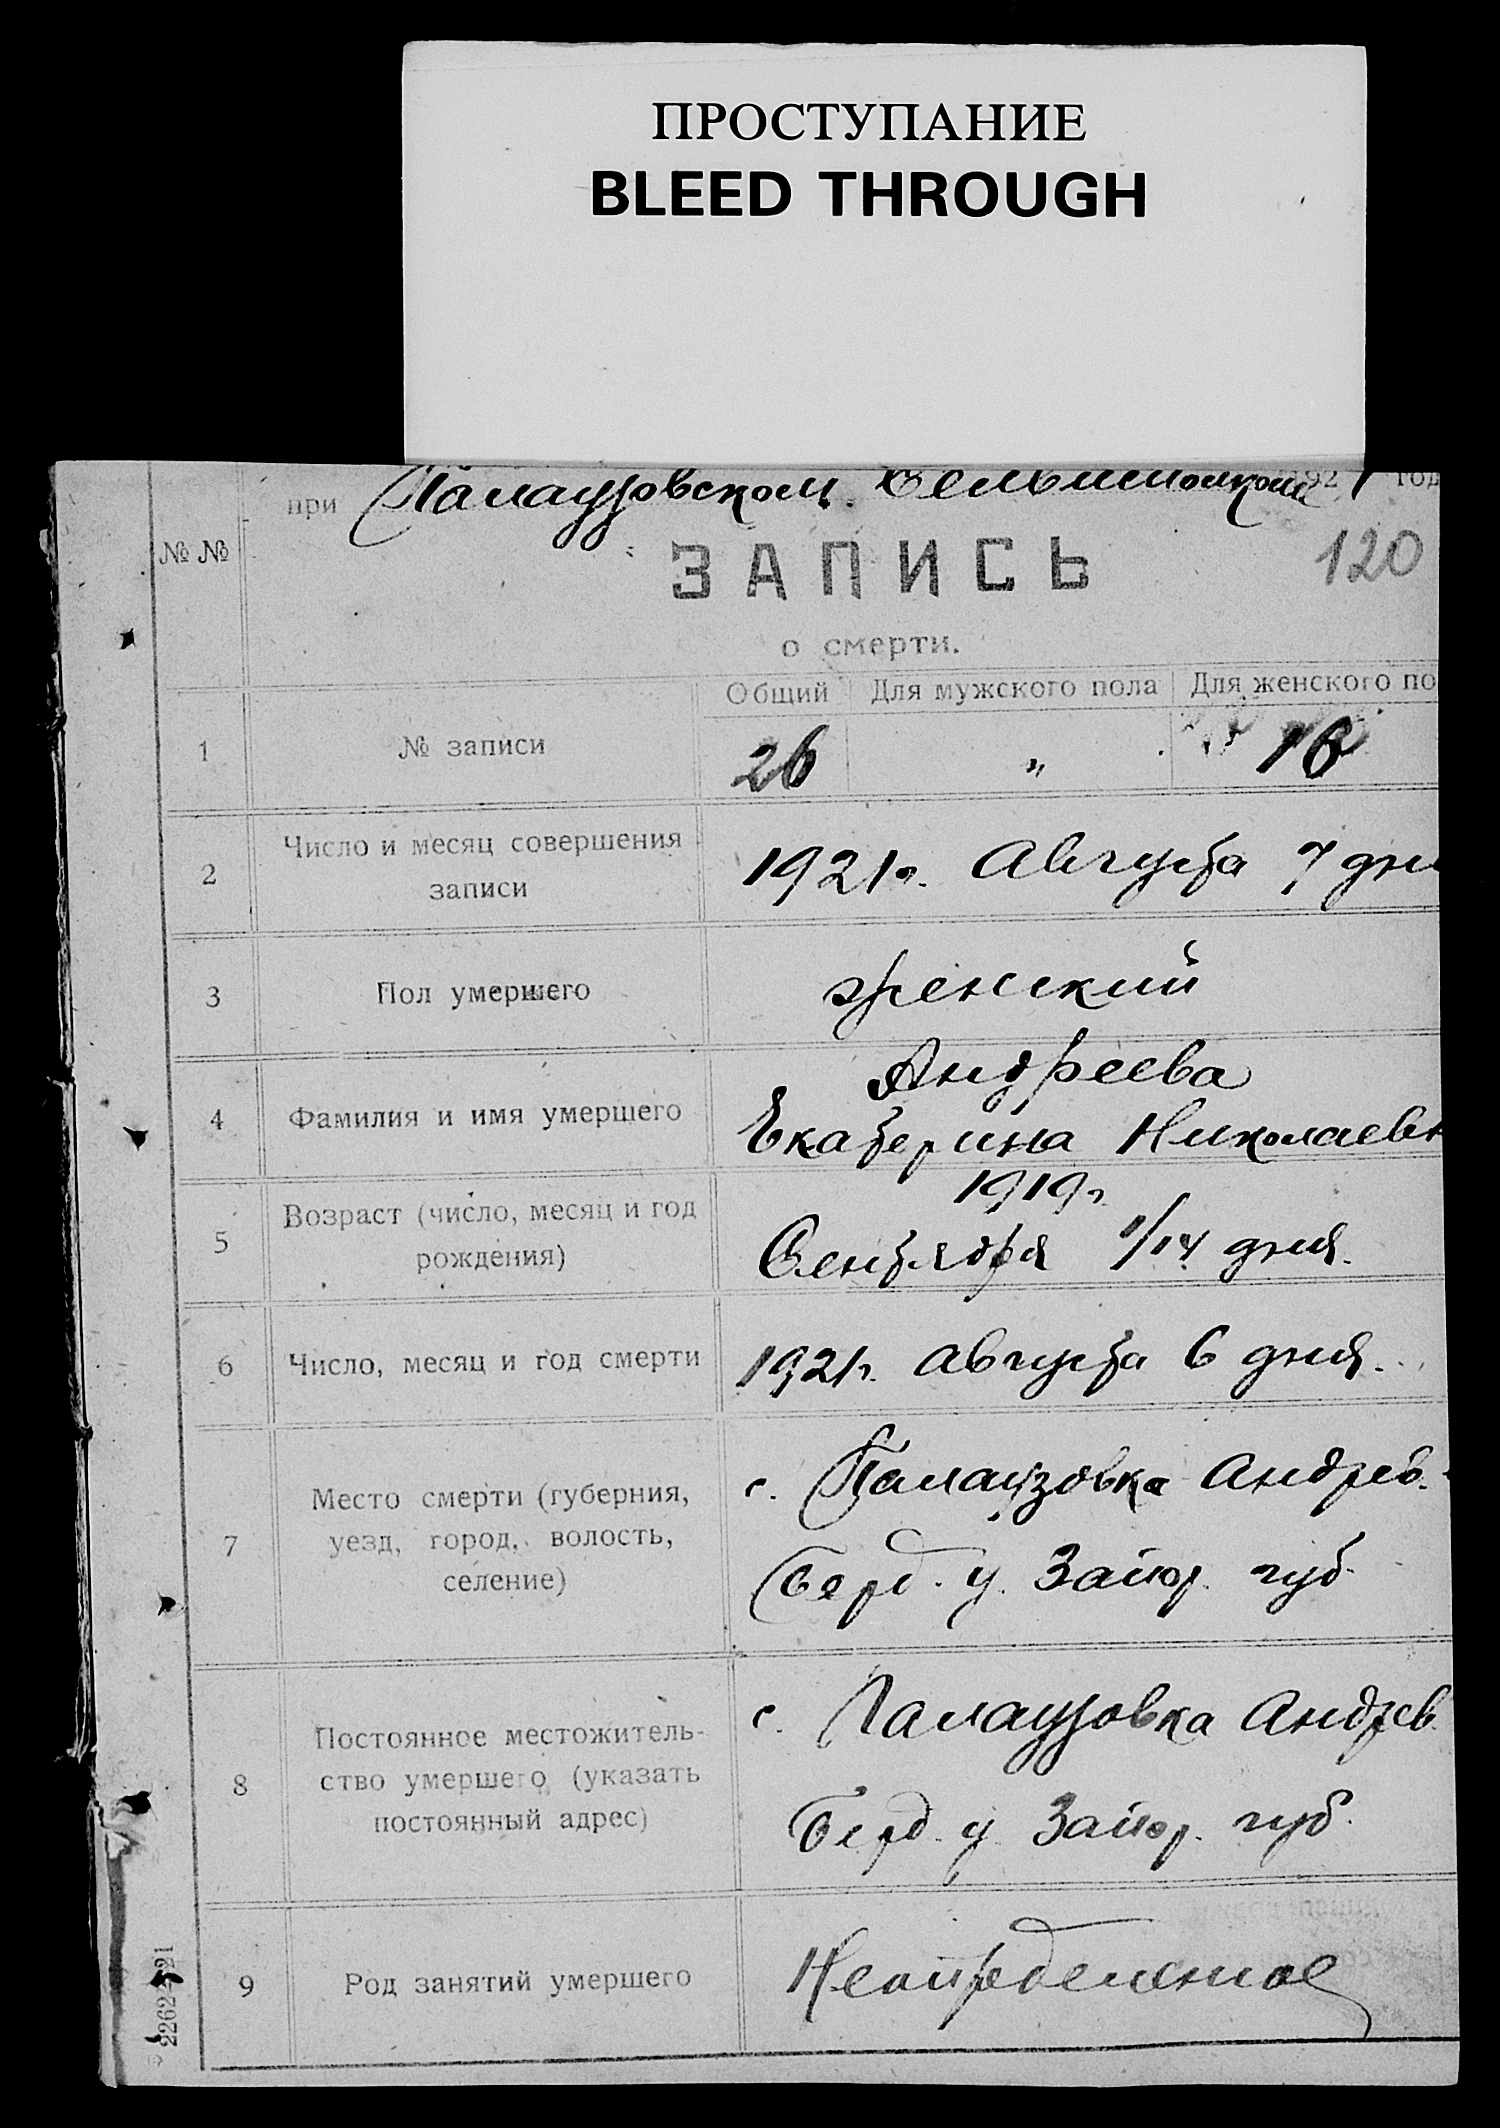 ПРОСТУПАНИЕ
BLEED THROUGH
при Палаузовском 192 1 год
№ №
ЗАПИСЬ
120
о смерти.
Общий Для мужского пола Для женского по
1 № записи 26 " 16
2 Число и месяц совершения
записи
1921г. Августа 7 дня
3 Пол умершего женский
4 Фамилия и имя умершего
Андреева
Екатерина Николаевн
5 Возраст (число, месяц и год
рождения)
1919г.
Сентября 1/14 дня.
6 Число, месяц и год смерти 1921г. Августа 6 дня.
7 Место смерти (губерния,
уезд, город, волость,
селение)
с. Палаузовка Андрев.
Берд. у. Запор. губ.
8 Постоянное местожитель-
ство умершего (указать
постоянный адрес)
с. Палаузовка Андрев.
Берд. у. Запор. губ.
9 Род занятий умершего Неопределенное